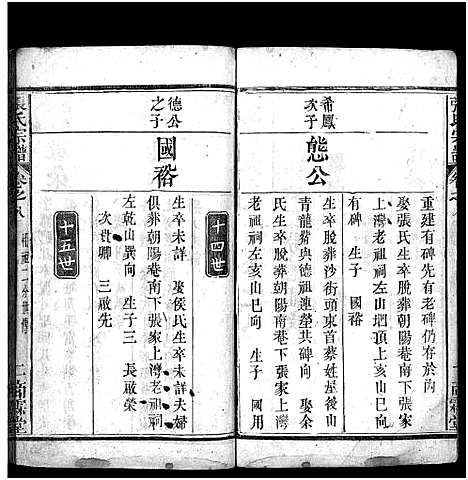 張氏宗譜 卷之八
重建有碑先有老碑仍存於內
娶張氏生卒脫葬朝陽菴南下張家
上灣老祖祠左山塆頂上亥山巳向
有碑 生子 國裕
希鳳
次子
態公
生卒脫葬沙街頭東首蔡姓屋後山
青龍嘴與德祖連塋共碑向 娶余
氏生卒脫葬朝陽南菴下張家上灣
老祖祠左亥山巳向 生子 國用
十四世
德公
之子
國裕
生卒未詳 娶侯氏生卒未詳夫婦
俱葬朝陽菴南下張家上灣老祖祠
左乾山巽向 生子三 長啟榮
次貴卿 三啟先
十五世
張氏宗譜 卷之八